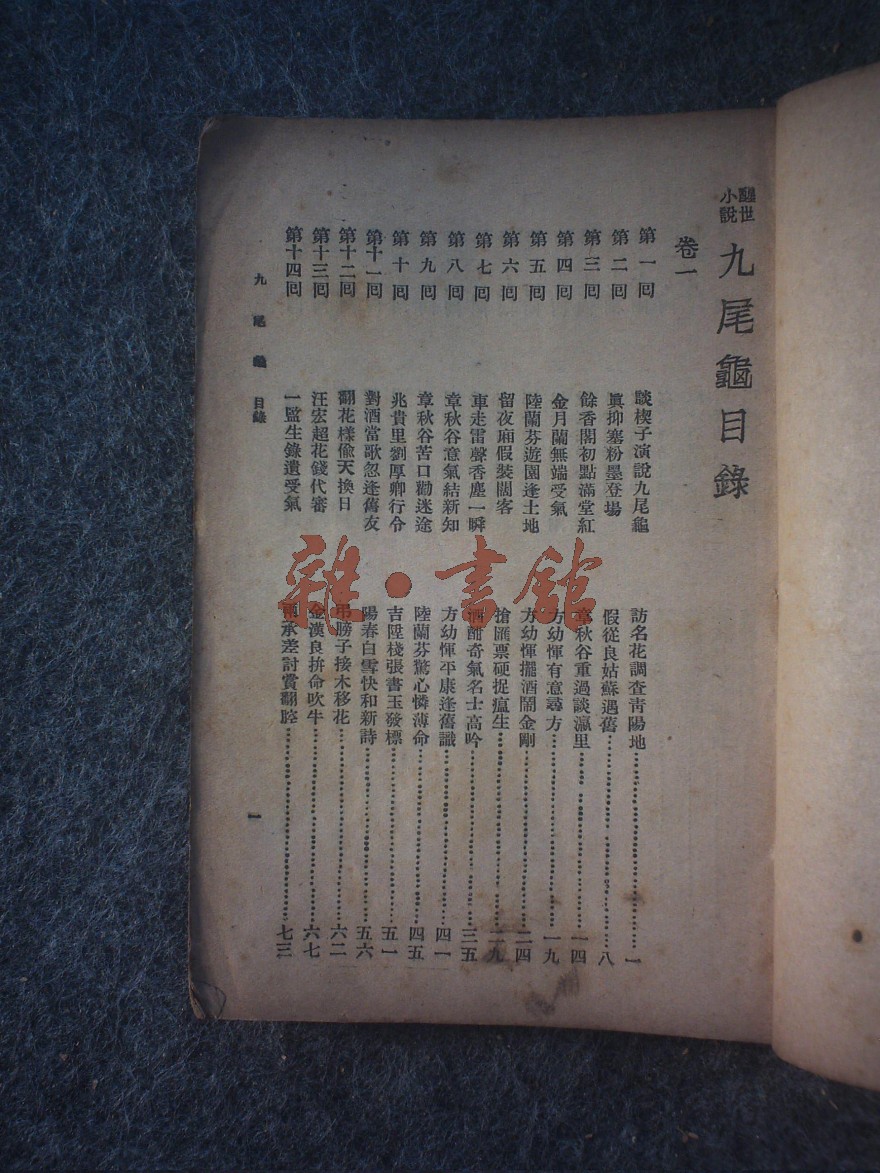 醒世小說 九尾龜目錄
卷一
第一回 談楔子演說九尾龜 訪名花調查青陽地 一
第二回 眞抑塞粉墨登場 假從良姑蘇遇舊 八
第三回 餘香閣初點滿堂紅 章秋谷重過談瀛里 一四
第四回 金月蘭無端受氣 方幼惲有意尋方 一九
第五回 陸蘭芬遊園逢土地 方幼惲擺酒鬧金剛 二四
第六回 留夜廂假裝闊客 搶匯票硬捉瘟生 二九
第七回 車走雷聲香塵一瞬 酒酣奇氣名士高吟 三五
第八回 章秋谷意氣結新知 方幼惲平康逢舊識 四一
第九回 章秋谷苦口勸迷途 陸蘭芬驚心憐薄命 四五
第十回 兆貴里劉厚卿行令 吉陞棧張書玉發標 五一
第十一回 對酒當歌忽逢舊友 陽春白雪快和新詩 五六
第十二回 翻花樣偷天換日 弔膀子接木移花 六二
第十三回 汪宏超花錢代審 金漢良拚命吹牛 六七
第十四回 一監生錄遺受氣 兩承差討賞翻腔 七三
九尾龜 目錄
一
雜·書館